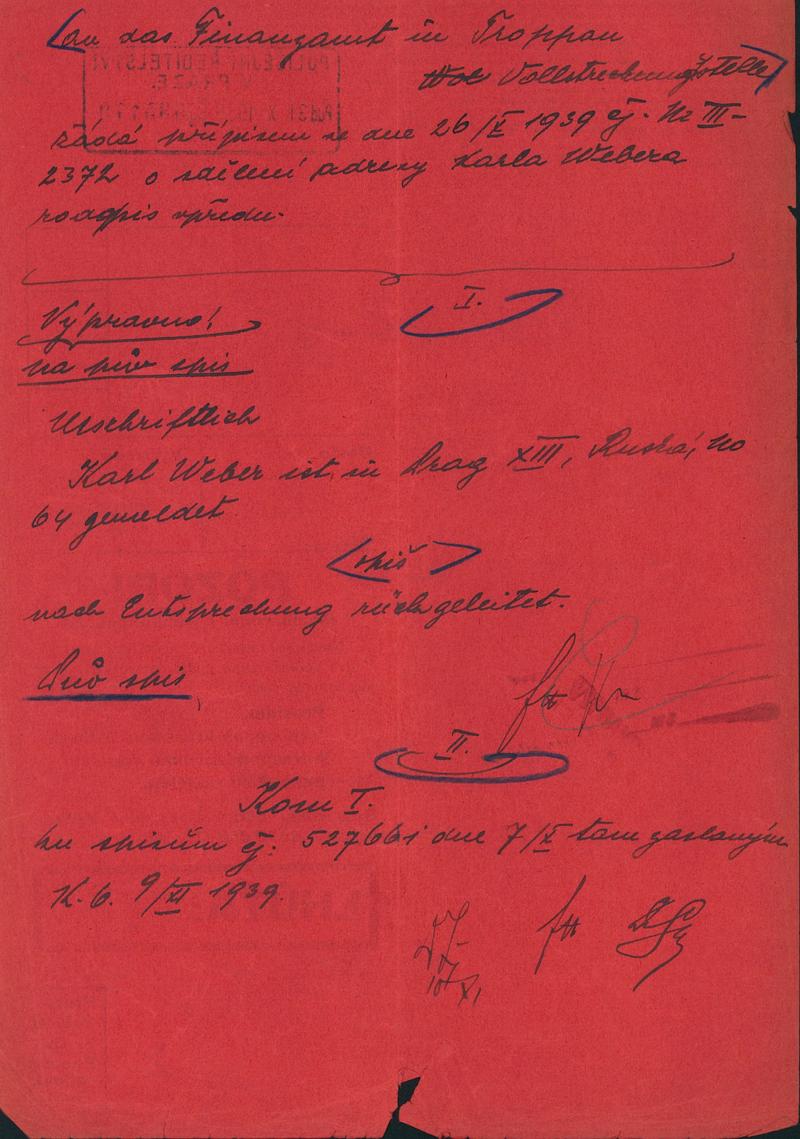 An das Finanzamt in Troppau
Vollstreckungsstelle
žádá přípisem ze dne 26/X 1939 čj. Nr III-
2372 o sdělení adresy Karla Webera
rodopis vpředu.
I.
Výpravno!
na pův spis
Urschriftlich
Karl Weber ist in Prag XIII, Ruská, No
64 gemeldet.
spis
nach Entsprechung rückgeleitet.
Pův spis
II.
Kom I.
ku spisům čj. 527661 dne 7/X tam zaslaným
K. b. 9/XI 1939.